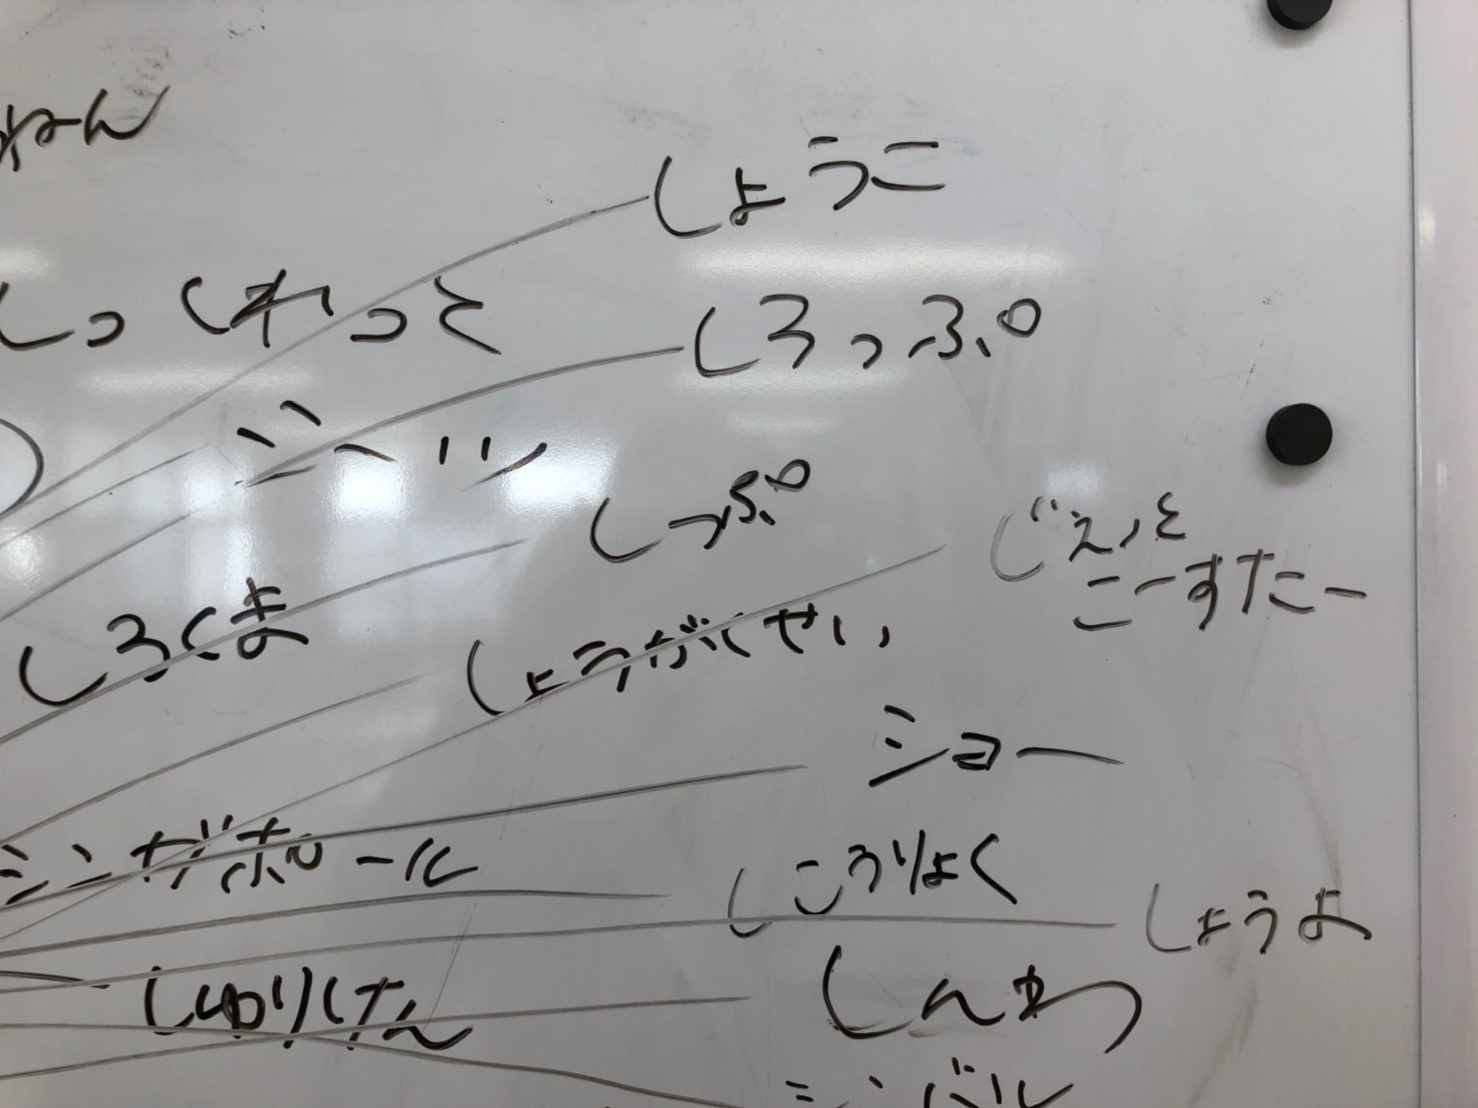 しょうこ
しろっぷ
シーツ
しっぷ
じぇっと
こーすたー
しろくま
しょうがくせい
ショー
シンガポール
しこうりょく
しょうよ
しゅりけん
しんわ